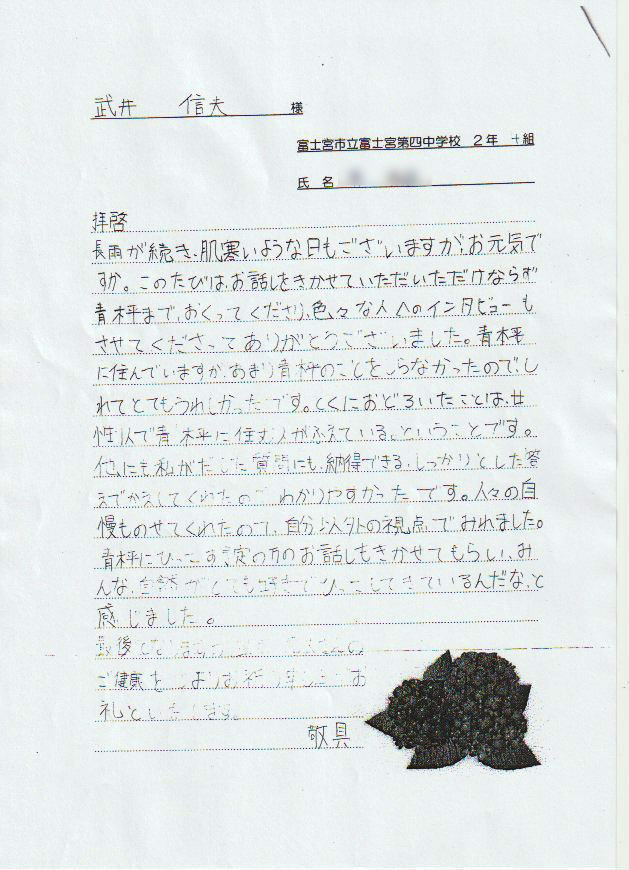 武井 信夫 様
富士宮市立富士宮第四中学校 2年 組
氏名
拝啓
長雨が続き、肌寒いような日もございますが、お元気で
すか。このたびは、お話しをきかせていただいただけならず
青木平まで、おくってくださり、色々な人へのインタビューも
させてくださってありがとうございました。青木平
に住んでいますが、あまり青木平のことをしらなかったので、し
れてとてもうれしかったです。とくにおどろいたことは、女
性1人で青木平に住む人がふえている、ということです。
他にも私がだした質問にも、納得できる、しっかりとした答
えでかえしてくれたので わかりやすかったです。人々の自
慢ものせてくれたので、自分以外の視点でみれました。
青木平にひっこす予定の方のお話しもきかせてもらい、み
んな、自然がとても好きでひっこしてきているんだな、と
感じました。
最後
ご健康を お
礼と します。
敬具